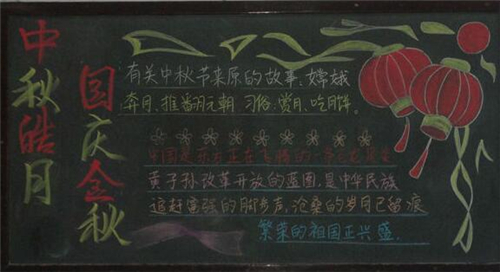 中秋皓月
国庆金秋
有关中秋节来原的故事：嫦娥
奔月、推翻元朝 习俗：赏月、吃月饼。
中国是东方正在飞腾的一条
黄子孙改革开放的蓝图，是中华民族
追赶富强的脚步声，沧桑的岁月已留痕
繁荣的祖国正兴盛.